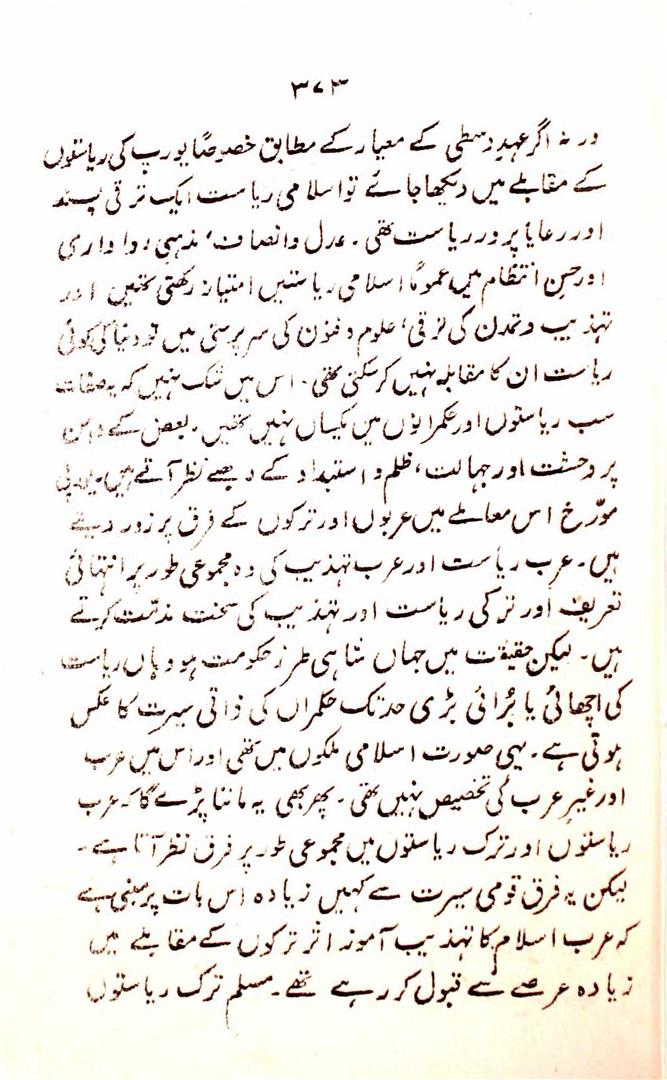 ۳۷۳
ورنہ اگر عہدِ وسطیٰ کے معیار کے مطابق خصوصاً یورپ کی ریاستوں
کے مقابلے میں دیکھا جائے تو اسلامی ریاست ایک ترقی پسند
اور رعایا پرور ریاست تھی۔ عدل و انصاف، مذہبی رواداری
اور حسن انتظام میں عموماً اسلامی ریاستیں امتیاز رکھتی تھیں اور
تہذیب و تمدن کی ترقی، علوم و فنون کی سرپرستی میں تو دنیا کی کوئی
ریاست ان کا مقابلہ نہیں کر سکتی تھی۔ اس میں شک نہیں کہ یہ صفات
سب ریاستوں اور حکمرانوں میں یکساں نہیں تھیں۔ بعض کے دامن
پر وحشت اور جہالت، ظلم و استبداد کے دھبے نظر آتے ہیں۔ یورپی
مورّخ اس معاملے میں عربوں اور ترکوں کے فرق پر زور دیتے
ہیں۔ عرب ریاست اور عرب تہذیب کی وہ مجموعی طور پر انتہائی
تعریف اور ترکی ریاست اور تہذیب کی سخت مذمّت کرتے
ہیں۔ لیکن حقیقت میں جہاں شاہی طرز حکومت ہو وہاں ریاست
کی اچھائی یا بُرائی بڑی حد تک حکمراں کی ذاتی سیرت کا عکس
ہوتی ہے۔ یہی صورت اسلامی ملکوں میں تھی اور اس میں عرب
اور غیر عرب کی تخصیص نہیں تھی۔ پھر بھی یہ ماننا پڑے گا کہ عرب
ریاستوں اور ترک ریاستوں میں مجموعی طور پر فرق نظر آتا ہے۔
لیکن یہ فرق قومی سیرت سے کہیں زیادہ اس بات پر مبنی ہے
کہ عرب اسلام کا تہذیب آموز اثر ترکوں کے مقابلے میں
زیادہ عرصے سے قبول کر رہے تھے۔ مسلم ترک ریاستوں